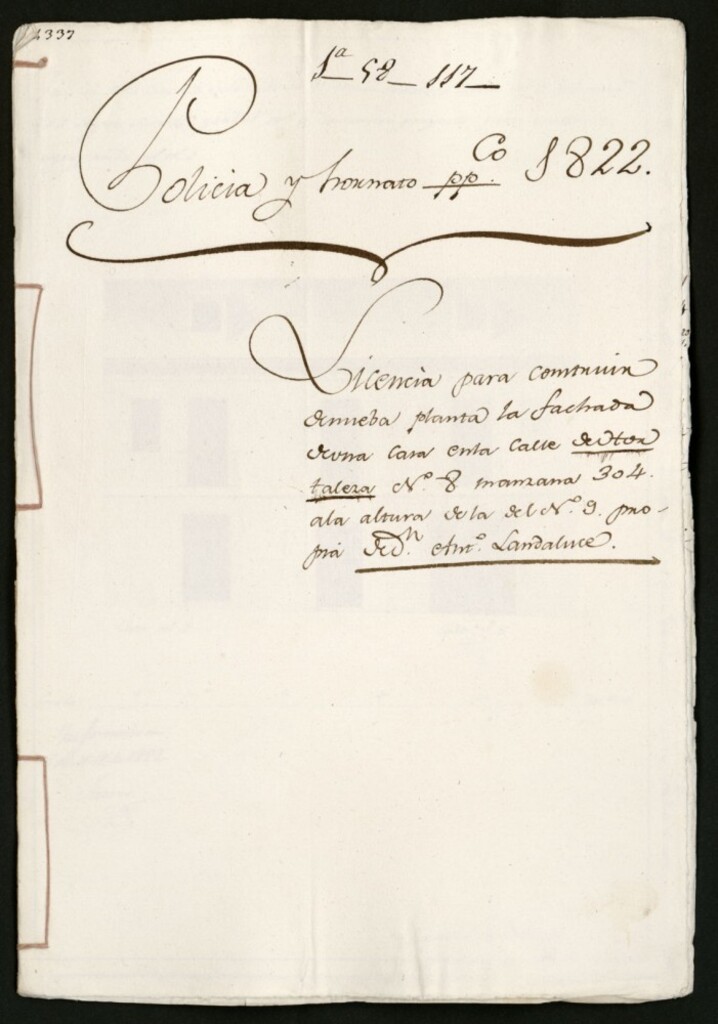 4337
1ª 58 117
Policia y hornato pp.co 1822.
Licencia para construir
de nueba planta la fachada
de una casa en la Calle de Hor
taleza N.º 8 manzana 304.
a la altura de la del N.º 9. pro-
pia de D.n Ant.º Landaluce.